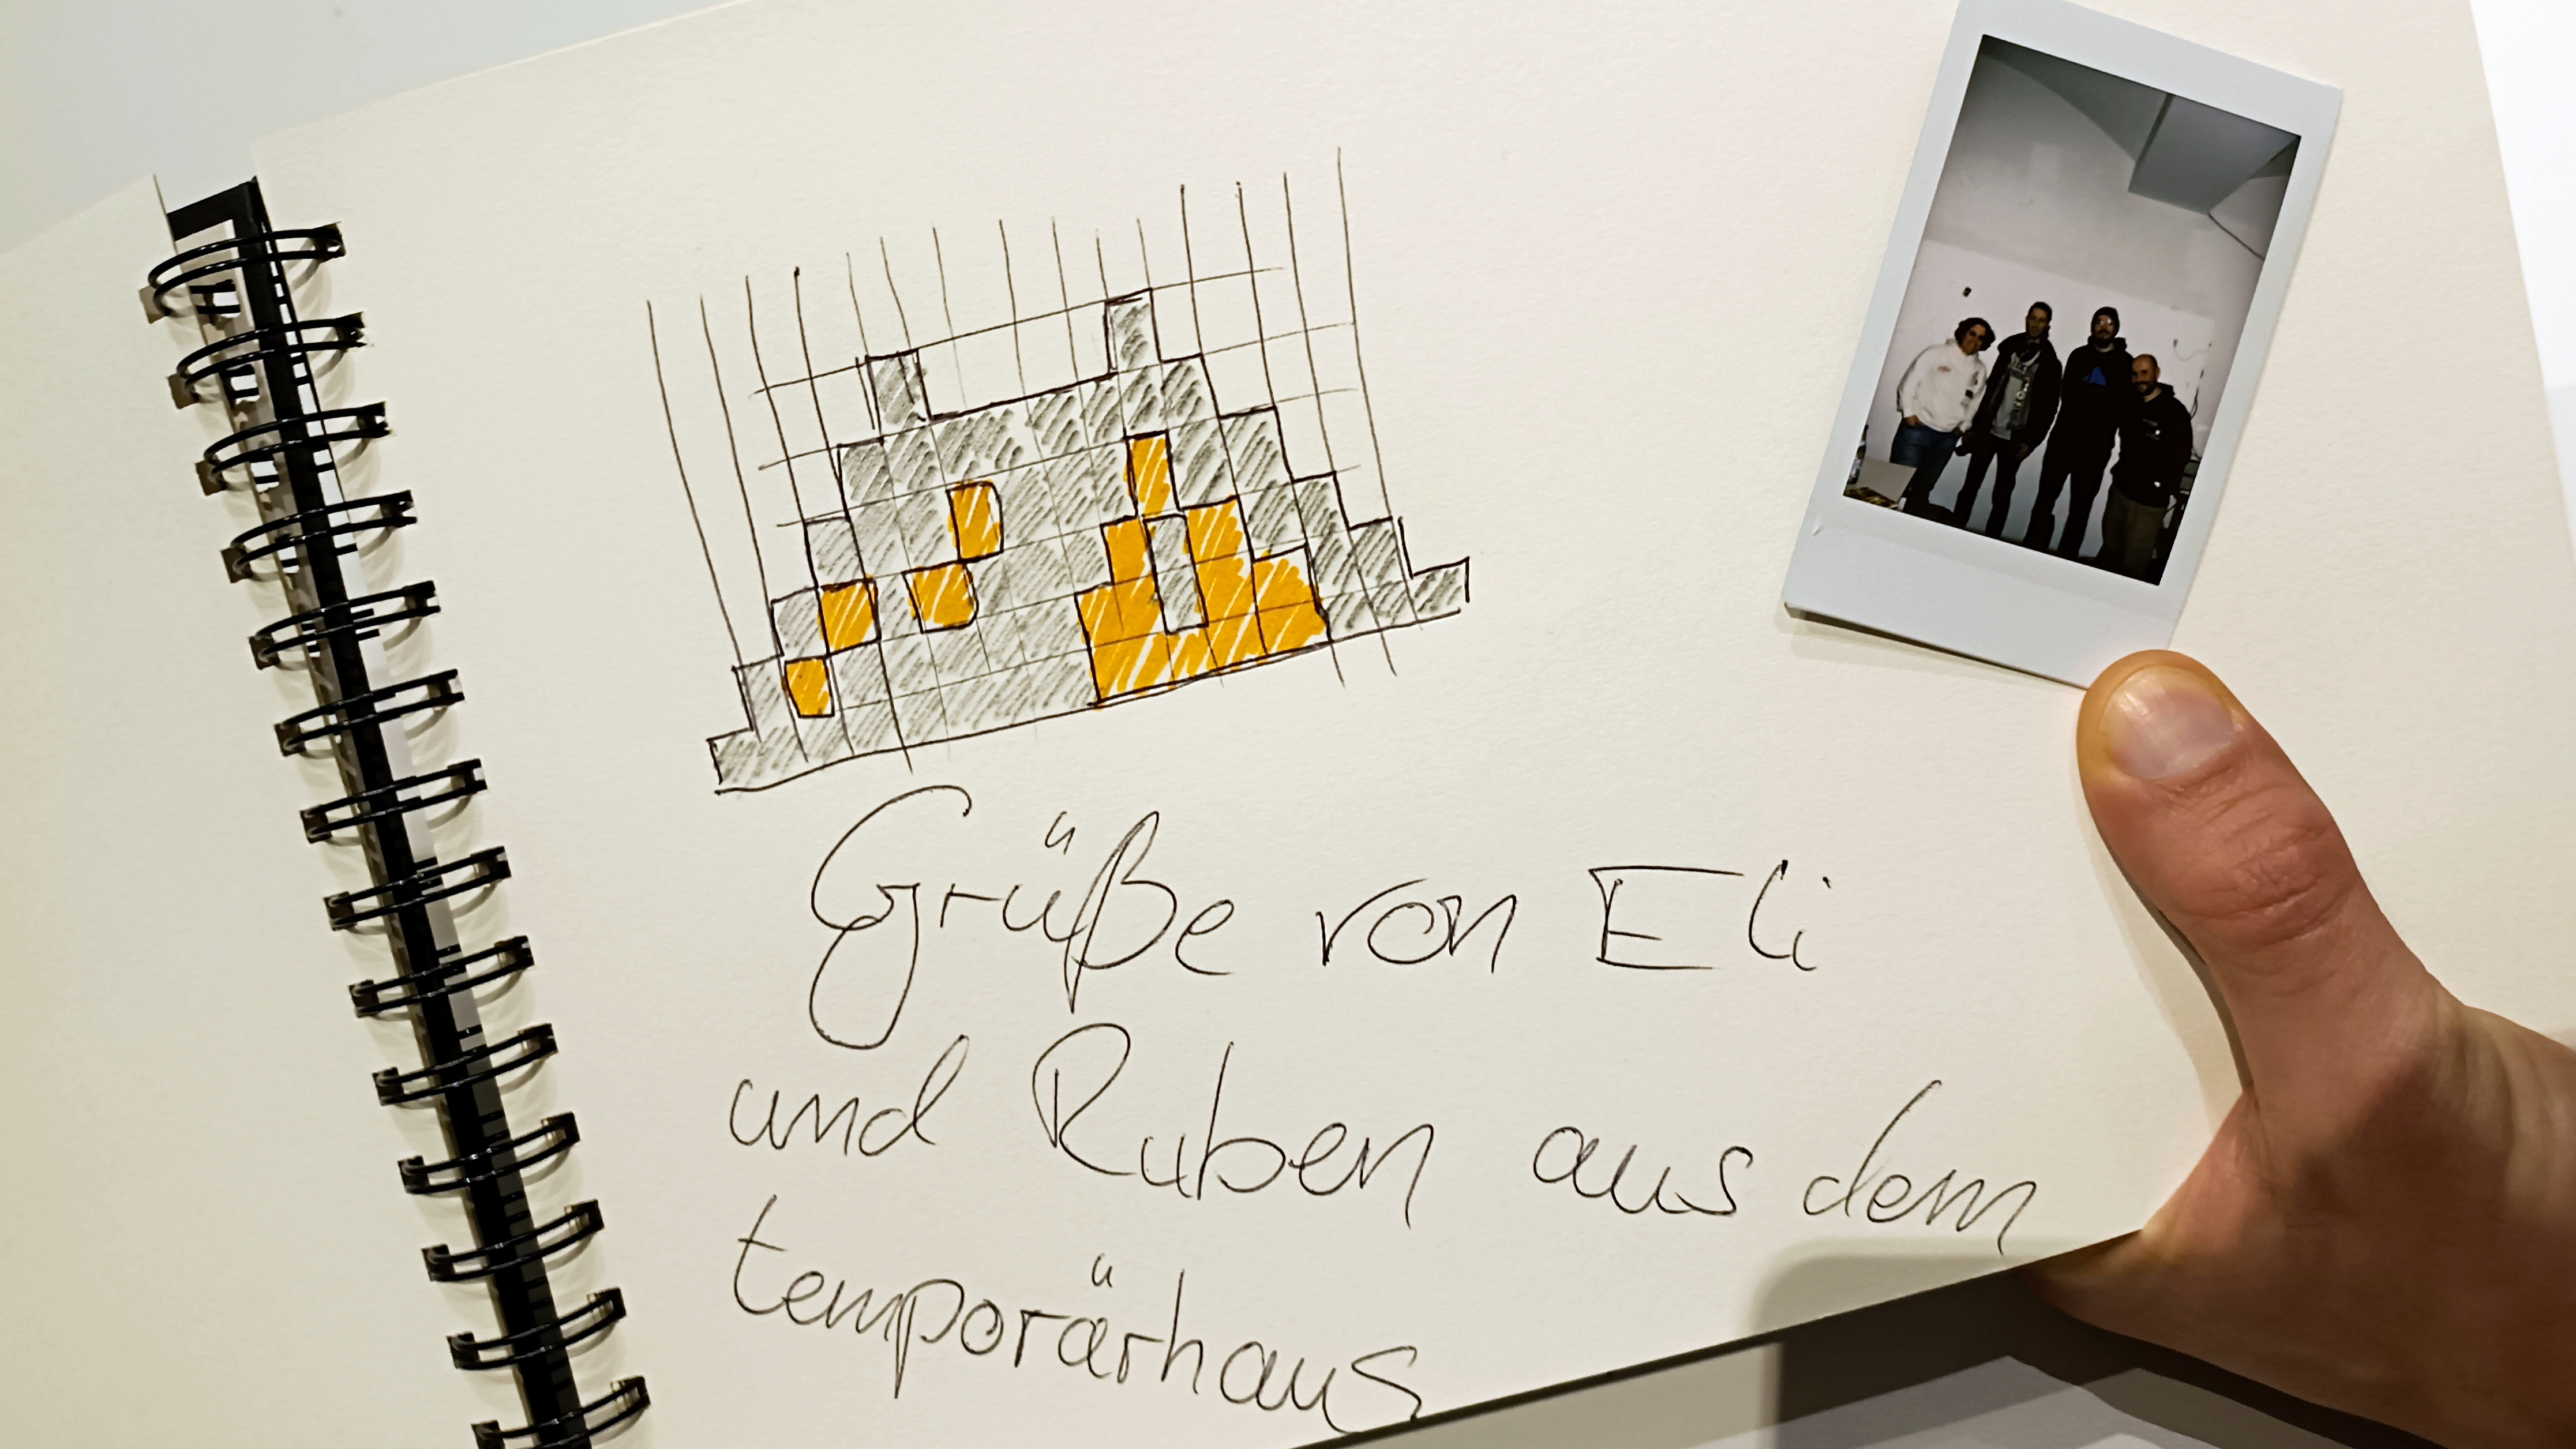 Grüße von Eli
und Ruben aus dem
temporärhaus